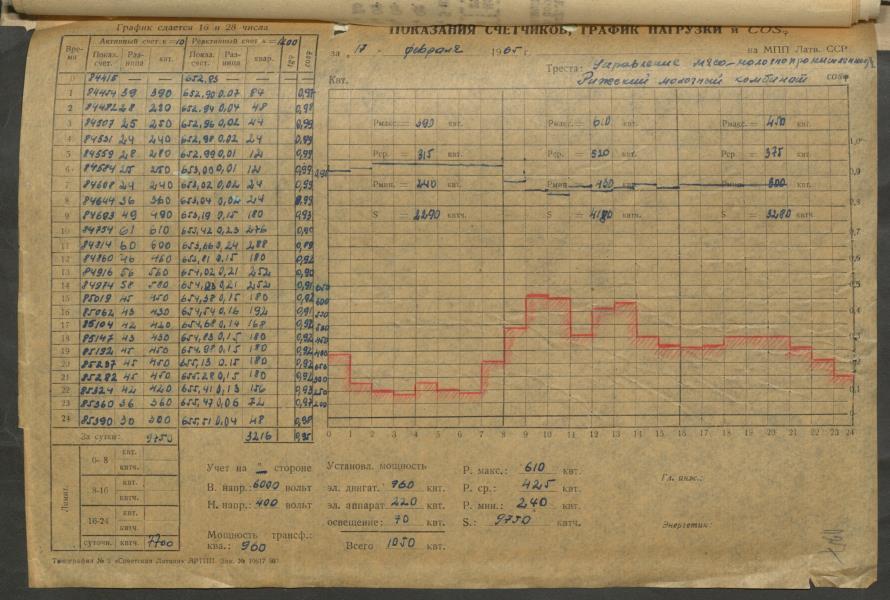 График сдается 16 и 28 числа
ПОКАЗАНИЯ СЧЕТЧИКОВ, ГРАФИК НАГРУЗКИ и COSφ
за 17 февраля 1965 г. на МПП Латв. ССР
Треста: Управление мясо-молочной промышленности
Рижский молочный комбинат
Время Активный счет к=10 Реактивный счет к=1200 tgφ cosφ
Показ. счет. Разница квт. Показ. счет. Разница квар.
0 84415 — — 652,83 —
1 84454 39 390 652,90 0.07 84 0,97
2 84482 28 280 652,94 0,04 48 0,98
3 84507 25 250 652,96 0,02 24 0,99
4 84531 24 240 652,98 0.02 24 0,99
5 84559 28 280 652,99 0,01 12 0,99
6 84584 25 250 653,00 0,01 12 0,99
7 84608 24 240 653,02 0,02 24 0,99
8 84644 36 360 653,04 0,02 24 0,99
9 84693 49 490 653,19 0,15 180 0,93
10 84754 61 610 653,42 0,23 276
11 84814 60 600 653,66 0,24 288 0,89
12 84860 46 460 653,81 0.15 180
13 84916 56 560 654,02 0,21 252 0,90
14 84974 58 580 0,21 252 0,91
15 85019 45 450 654,38 0,15 180
16 85062 43 430 654,54 0.16 192 0,91
17 85104 42 420 654,68 0,14 168
18 85147 43 430 654,83 0,15 180 0,92
19 85192 45 450 654,98 0,15 180
20 85237 45 450 655,13 0.15 180
21 85282 45 450 655,28 0,15 180
22 85324 42 420 655,41 0,13 156
23 85360 36 360 655,47 0,06 72
24 85390 30 300 655,51 0,04 48 0,98
За сутки: 9750 3216 0,95
Квт. cosφ
Рмакс. = 390 квт. Рмакс. = 610 квт. Рмакс. = 450 квт.
Рср. = 315 квт. Рср. = 520 квт. Рср. = 375 квт.
Рмин. = 240 квт. Рмин. = 430 квт. Рмин. = 300 квт.
S = 2290 квтч. S = 4180 квтч. S = 3280 квтч.
0 1 2 3 4 5 6 7 8 9 10 11 12 13 14 15 16 17 18 19 20 21 22 23 24
Лимит.
0-8 квт.
квтч.
8-16 квт.
квтч.
16-24 квт.
квтч.
суточн. квтч. 7700
Учет на " стороне
В. напр.: 6000 вольт
Н. напр.: 400 вольт
Мощность трансф.:
ква.: 960
Установл. мощность
эл. двигат. 760 квт.
эл. аппарат 220 квт.
освещение: 70 квт.
Всего 1050 квт.
Р. макс.: 610 квт.
Р. ср.: 425 квт.
Р. мин.: 240 квт.
S.: 9750 квтч.
Гл. инж.:
Энергетик:
Типография № 2 «Советская Латвия» ЛРТПП. Зак. №